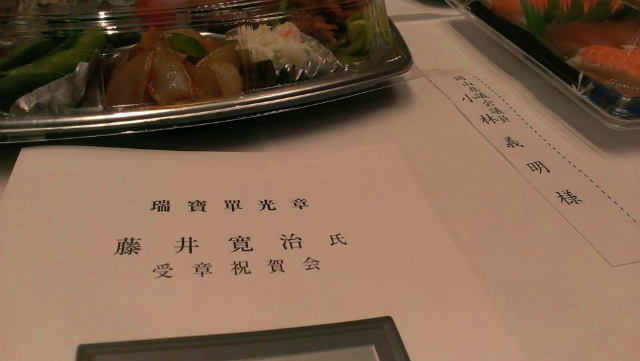 瑞寶單光章
藤井寛治氏
受章祝賀会
岡山県議会議員
小林義明様